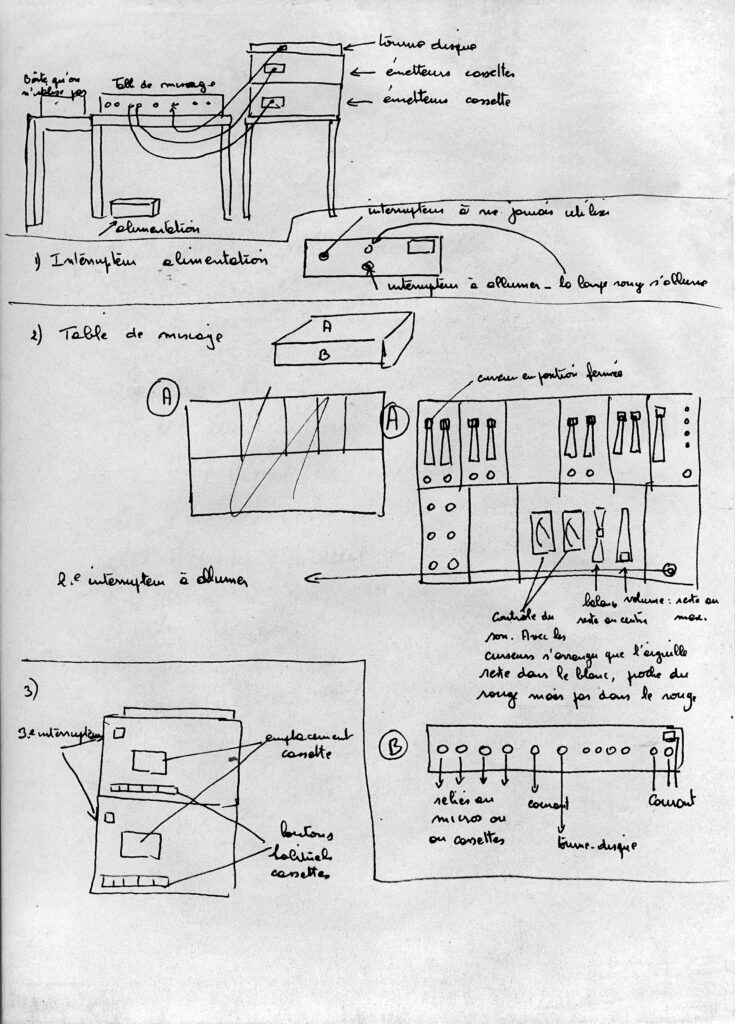 tourne disque
émetteurs cassettes
émetteurs cassette
Boîte qu'on
n'utilise pas
Table de mixage
alimentation
interrupteur à ne jamais utiliser
1) Interrupteur alimentation
interrupteur à allumer - la lampe rouge s'allume
2) Table de mixage
A
B
curseur en position fermée
A
A
2.e interrupteur à allumer
Contrôle du
son. Avec les
curseurs s'arranger que l'aiguille
reste dans le blanc, proche du
rouge mais pas dans le rouge
balance
reste au centre
volume: reste au
max.
3)
3.e interrupteur
emplacement
cassette
boutons
habituels
cassettes
B
reliés au
micros ou
ou cassettes
courant
tourne-disque
courant